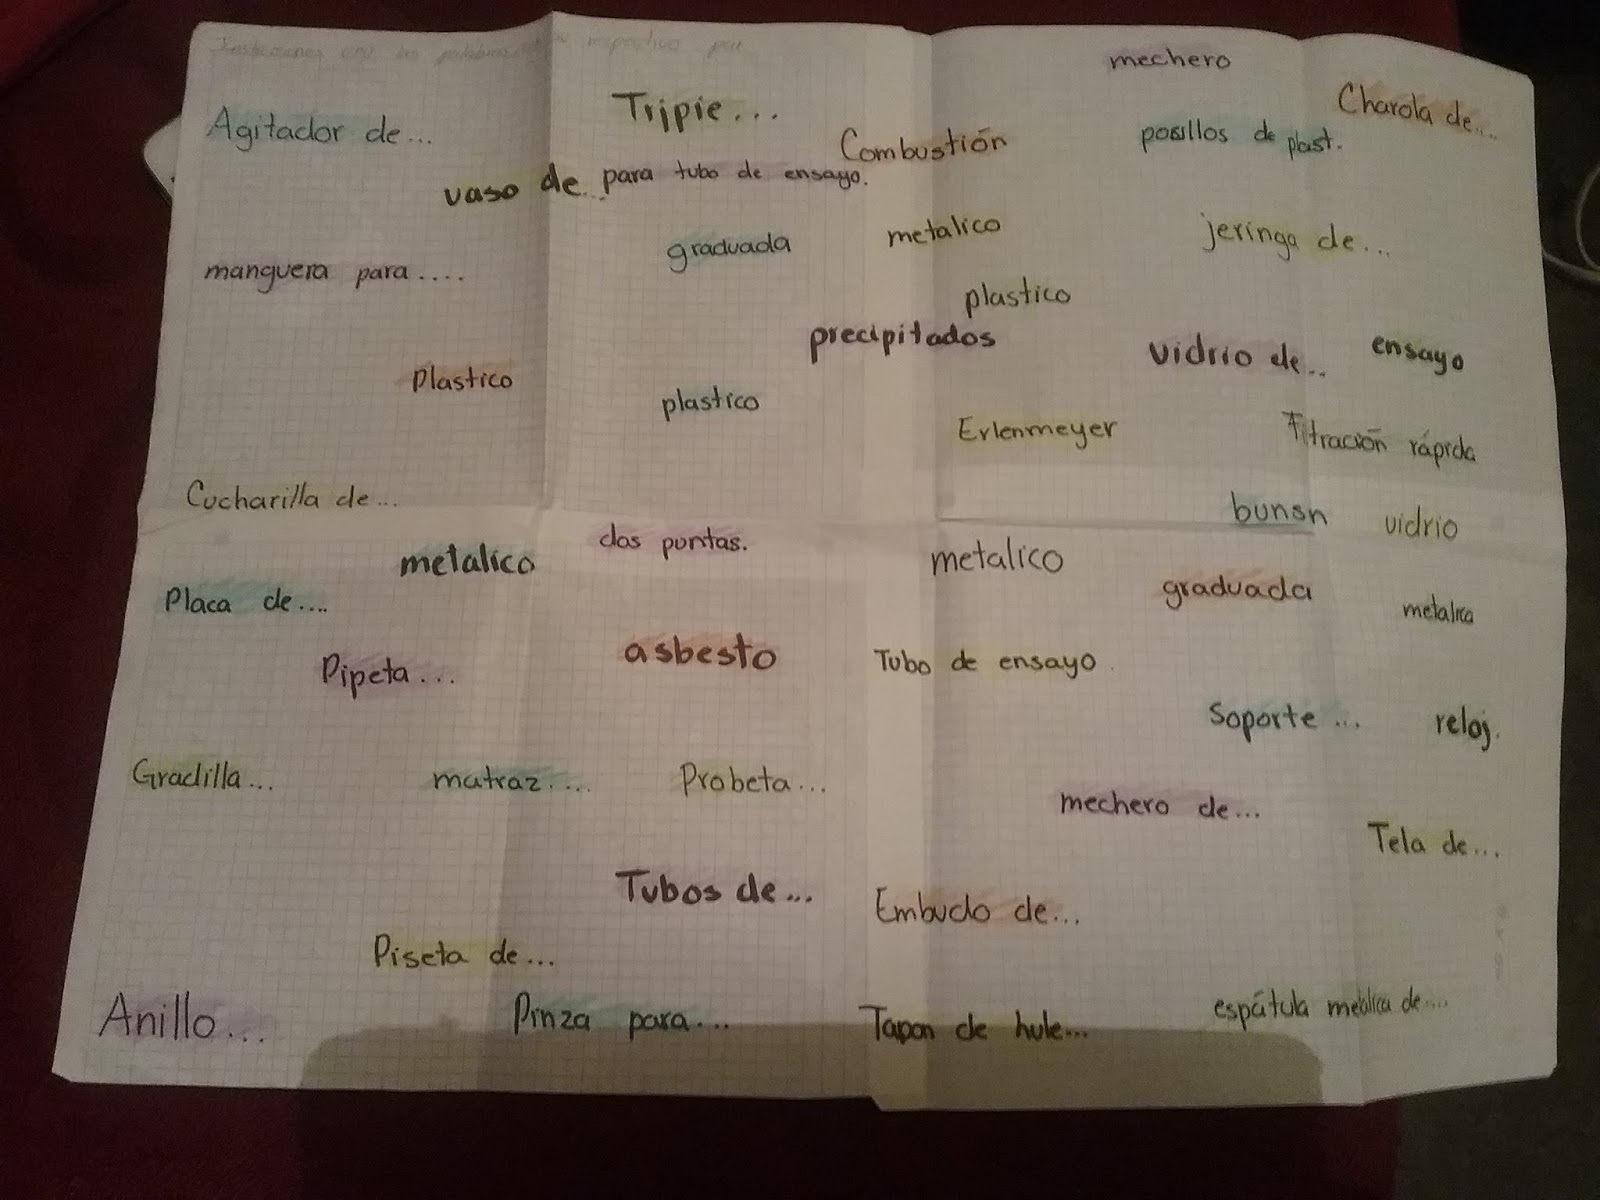 mechero
Charola de...
Agitador de...
Tripie...
Combustión
posillos de plast.
vaso de...
para tubo de ensayo.
graduada
metalico
jeringa de...
manguera para....
plastico
precipitados
vidrio de..
ensayo
Plastico
plastico
Erlenmeyer
Filtración rápida
Cucharilla de...
bunsn
vidrio
metalico
dos puntas.
metalico
graduada
metalica
Placa de....
Pipeta...
asbesto
Tubo de ensayo
Soporte ...
reloj.
Gradilla...
matraz....
Probeta...
mechero de...
Tela de...
Tubos de...
Embudo de...
Piseta de...
Anillo...
Pinza para....
Tapon de hule...
espátula metalica de....